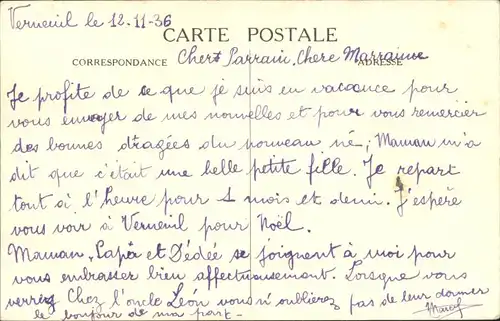 Verneuil le 12-11-36
CARTE POSTALE
CORRESPONDANCE
ADRESSE
Cher Parrain, Chere Marraine
Je profite de ce que je suis en vacance pour
vous envoyer de mes nouvelles et pour vous remercier
des bonnes dragées du nouveau né, Maman m'a
dit que c'était une belle petite fille. Je repart
tout à l'heure pour 1 mois et demi. J'espère
vous voir à Verneuil pour Noël.
Maman, Papa et Dédée se joignent à moi pour
vous embrasser bien affectueusement. Lorsque vous
verrez Chez l'oncle Léon vous n'oublierez pas de leur donner
le bonjour de ma part -